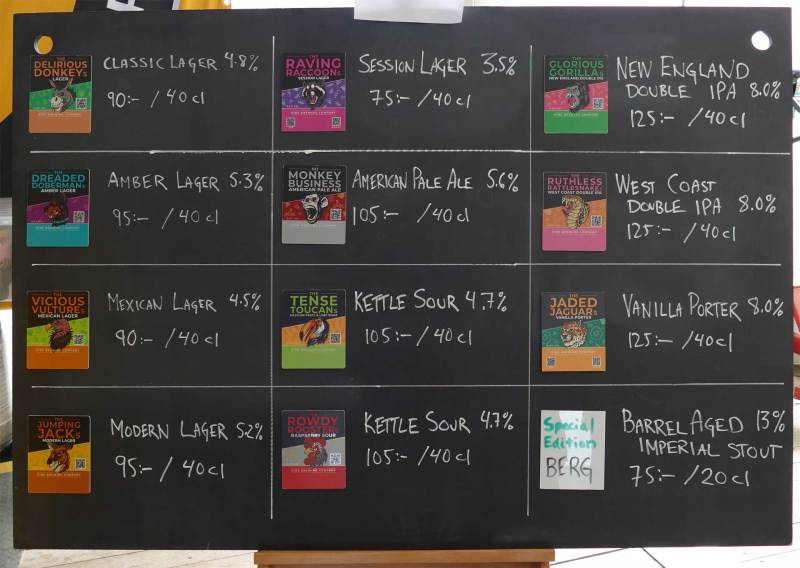 THE
DELIRIOUS
DONKEYS
LAGER
CLASSIC LAGER 4.8%
90:- / 40 cl
THE
RAVING
RACCOONS
SESSION LAGER
SESSION LAGER 3.5%
75:- / 40 cl
THE
GLORIOUS
GORILLAS
NEW ENGLAND DOUBLE IPA
NEW ENGLAND
DOUBLE IPA 8.0%
125:- / 40 cl
THE
DREADED
DOBERMANS
AMBER LAGER
AMBER LAGER 5.3%
95:- / 40 cl
THE
MONKEY
BUSINESS
AMERICAN PALE ALE
AMERICAN PALE ALE 5.6%
105:- / 40 cl
THE
RUTHLESS
RATTLESNAKES
WEST COAST DOUBLE IPA
WEST COAST
DOUBLE IPA 8.0%
125:- / 40 cl
THE
VICIOUS
VULTURES
MEXICAN LAGER
MEXICAN LAGER 4.5%
90:- / 40 cl
THE
TENSE
TOUCANS
KETTLE SOUR 4.7%
105:- / 40 cl
THE
JADED
JAGUARS
VANILLA PORTER
VANILLA PORTER 8.0%
125:- / 40 cl
THE
JUMPING
JACKS
MODERN LAGER
MODERN LAGER 5.2%
95:- / 40 cl
THE
ROWDY
ROOSTERS
RASPBERRY SOUR
KETTLE SOUR 4.7%
105:- / 40 cl
Special
Edition
BERG
BARREL AGED 13%
IMPERIAL STOUT
75:- / 20 cl